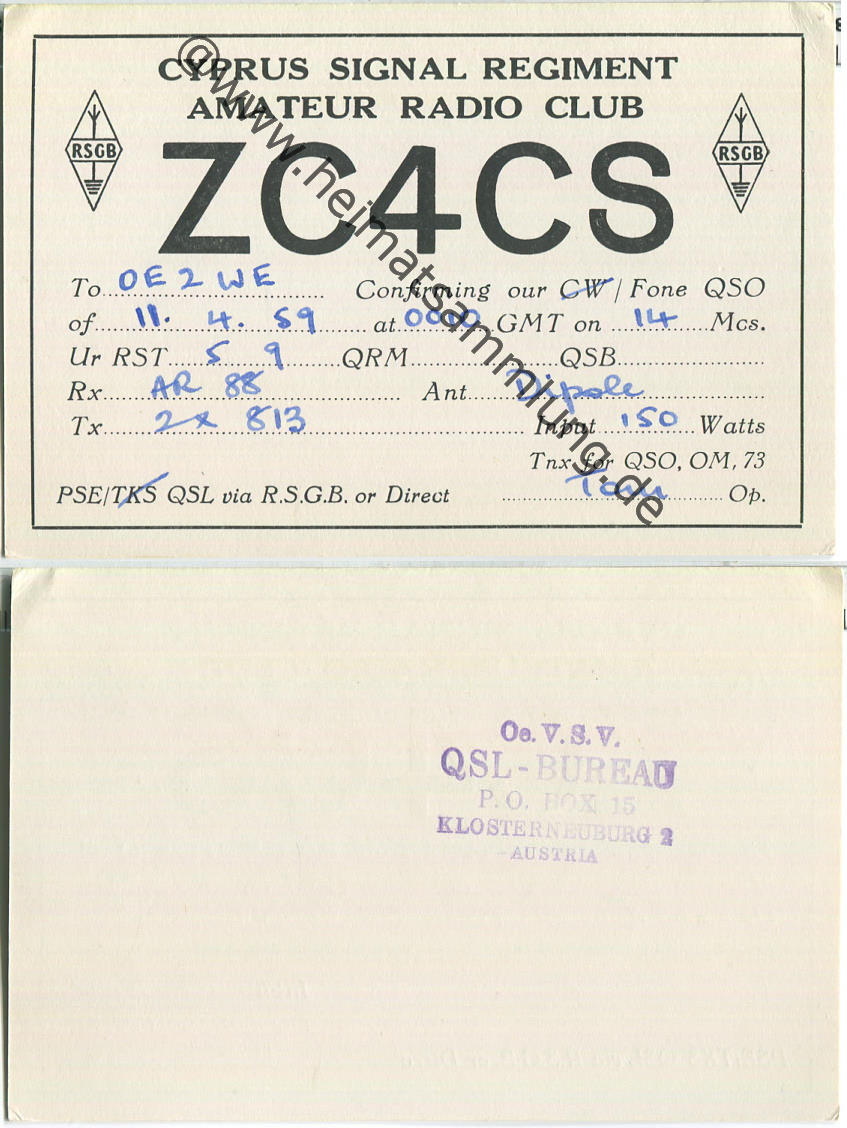 CYPRUS SIGNAL REGIMENT
AMATEUR RADIO CLUB
RSGB
RSGB
ZC4CS
To OE2WE Confirming our CW / Fone QSO
of 11. 4. 59 at 0010 GMT on 14 Mcs.
Ur RST 5 9 QRM QSB
Rx AR 88 Ant Dipole
Tx 2x 813 Input 150 Watts
Tnx for QSO, OM, 73
PSE/TKS QSL via R.S.G.B. or Direct Tom Op.
@www.heimatsammlung.de
Oe. V. S. V.
QSL-BUREAU
P.O. BOX 15
KLOSTERNEUBURG 2
-AUSTRIA